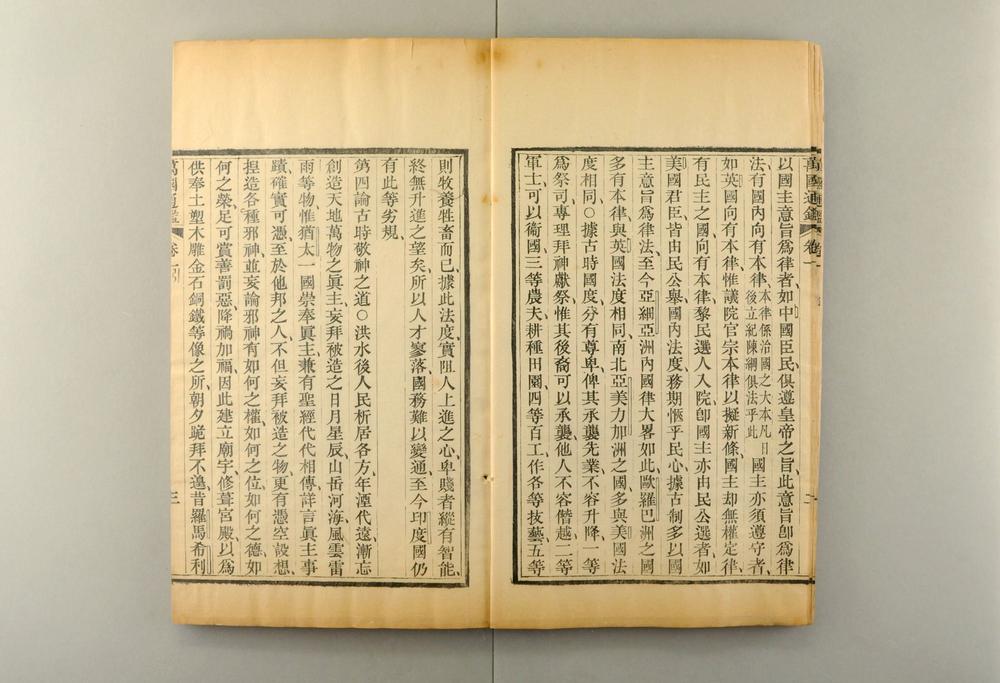 萬國通鑑 卷一 二
以國主意旨爲律者、如中國臣民、俱遵皇帝之旨、此意旨卽爲律
法、有國內向有本律、本律係治國之大本、凡日後立紀陳綱、俱法乎此、國主亦須遵守者、
如英國向有本律、惟議院官宗本律以擬新條、國主却無權定律、
有民主之國、向有本律、黎民選人入院、卽國主亦由民公選者、如
美國君臣、皆由民公舉、國內法度、務期愜乎民心、據古制多以國
主意旨爲律法、至今亞細亞洲內國律大畧如此、歐羅巴洲之國
多有本律、與英國法度相同、南北亞美力加洲之國、多與美國法
度相同○據古時國度、分有尊卑、俾其承襲先業、不容升降、一等
爲祭司、專理拜神獻祭、惟其後裔可以承襲、他人不容僭越、二等
軍士、可以衞國、三等農夫、耕種田園、四等百工、作各等技藝、五等
則牧養牲畜而已、據此法度、實阻人上進之心、卑賤者縱有智能、
終無升進之望矣、所以人才寥落、國務難以變通、至今印度國仍
有此等劣規、
第四論古時敬神之道○洪水後人民析居各方、年湮代遠、漸忘
創造天地萬物之眞主、妄拜被造之日月星辰、山岳河海、風雲雷
雨等物、惟猶太一國崇奉眞主、兼有聖經代代相傳、詳言眞主事
蹟、確實可憑、至於他邦之人、不但妄拜被造之物、更有憑空設想、
捏造各種邪神、並妄論邪神有如何之權、如何之位、如何之德、如
何之榮、足可賞善罰惡、降禍加福、因此建立廟宇、修葺宮殿、以爲
供奉土塑木雕金石銅鐵等像之所、朝夕跪拜不遑、昔羅馬希利
萬國通鑑 卷一 三